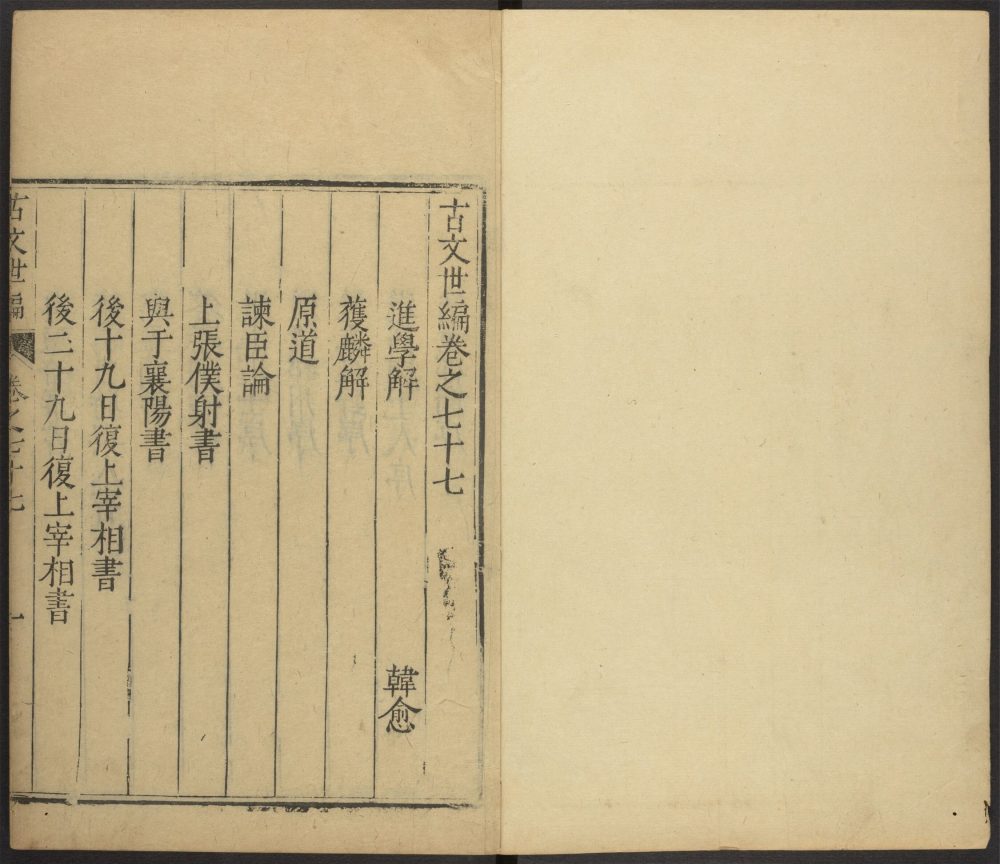 古文世編卷之七十七
進學解 韓愈
獲麟解
原道
諫臣論
上張僕射書
與于襄陽書
後十九日復上宰相書
後二十九日復上宰相書
古文世編 卷之七十七 一